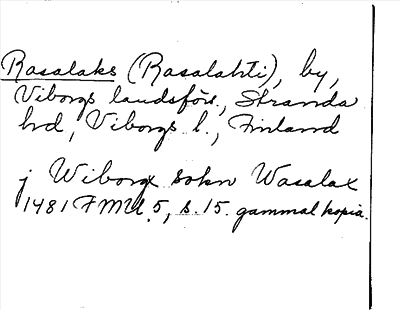 Rasalaks (Rasalahti), by,
Viborgs landsförs., Stranda
hd, Viborgs l., Finland
j Wiborgx sokn Wasalax
1481 FMU 5, s. 15. gammal kopia.